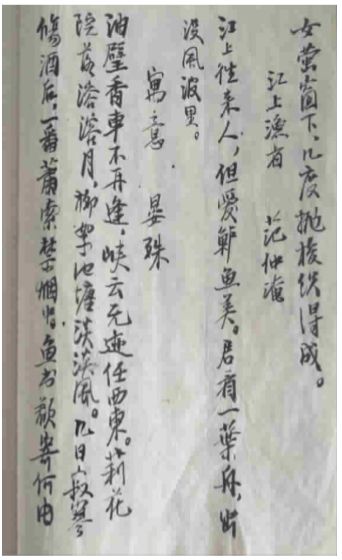 女萤窗下，几度抛梭织得成。
江上渔者 范仲淹
江上往来人，但愛鲈鱼美。君看一葉舟，出
没风波里。
寓意 晏殊
油壁香車不再逢，峡云无迹任西东。莉花
院落溶溶月，柳絮池塘淡淡風。几日寂寥
傷酒后，一番蕭索禁烟中。鱼书欲寄何由